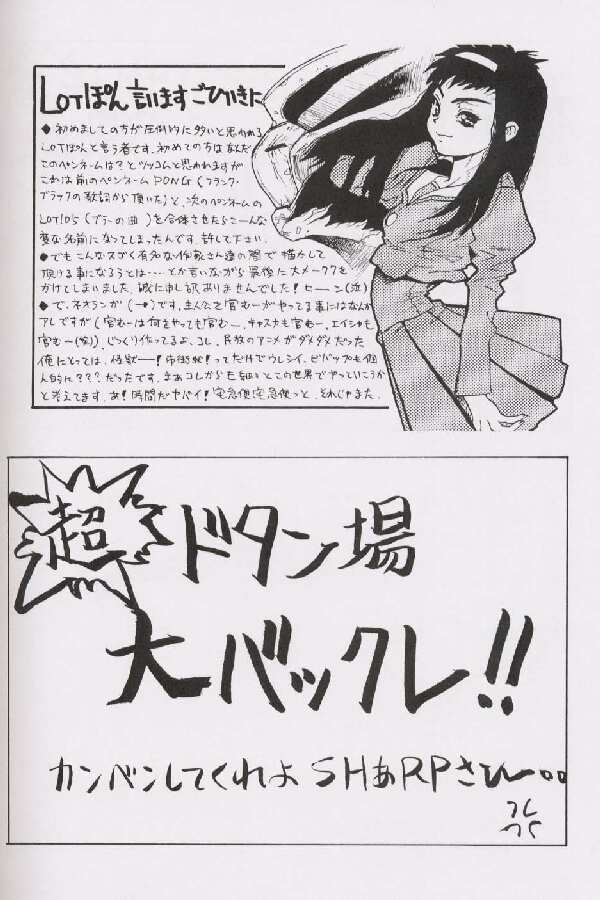 LOTぽん言いますごひいきに
◆初めましての方が圧倒的に多いと思われる
LOTぽんと言う者です。初めての方はなんだ
このペンネームは？とツッコムと思われますが
これは前のペンネームPONG(フランク・
ブラックの歌詞から頂いた)と、次のペンネームの
を合体させたらこーんな
変な名前になってしまったんです。許して下さい。
◆でもこんなスゴく有名な作家さん達の間で描かして
頂ける事になろうとは…とか言いながら最後に大メークを
かけてしまいました。誠に申し訳ありませんでした！せーこ(泣)
◆で、ネオランガ(→)です。主人公を官むーがやってる事にはなんか
アレですが(官むーは何をやっても官むー、キャスカも官むー、エイシャも
官むー(笑))じっくり作ってるよ、コレ。民放のアニメがダメダメだった
俺にとっては、怪獣ー！市街戦！ってだけでウレシイ。ビバップも個
人的に？？？だったです。まあコレからも細々とこの世界でやっていこうか
と考えてます。あ！時間だヤバイ！宅急便宅急便っと、それじゃまた。
超ドタン場
大バックレ!!
カンベンしてくれよSHあRPさひー。。